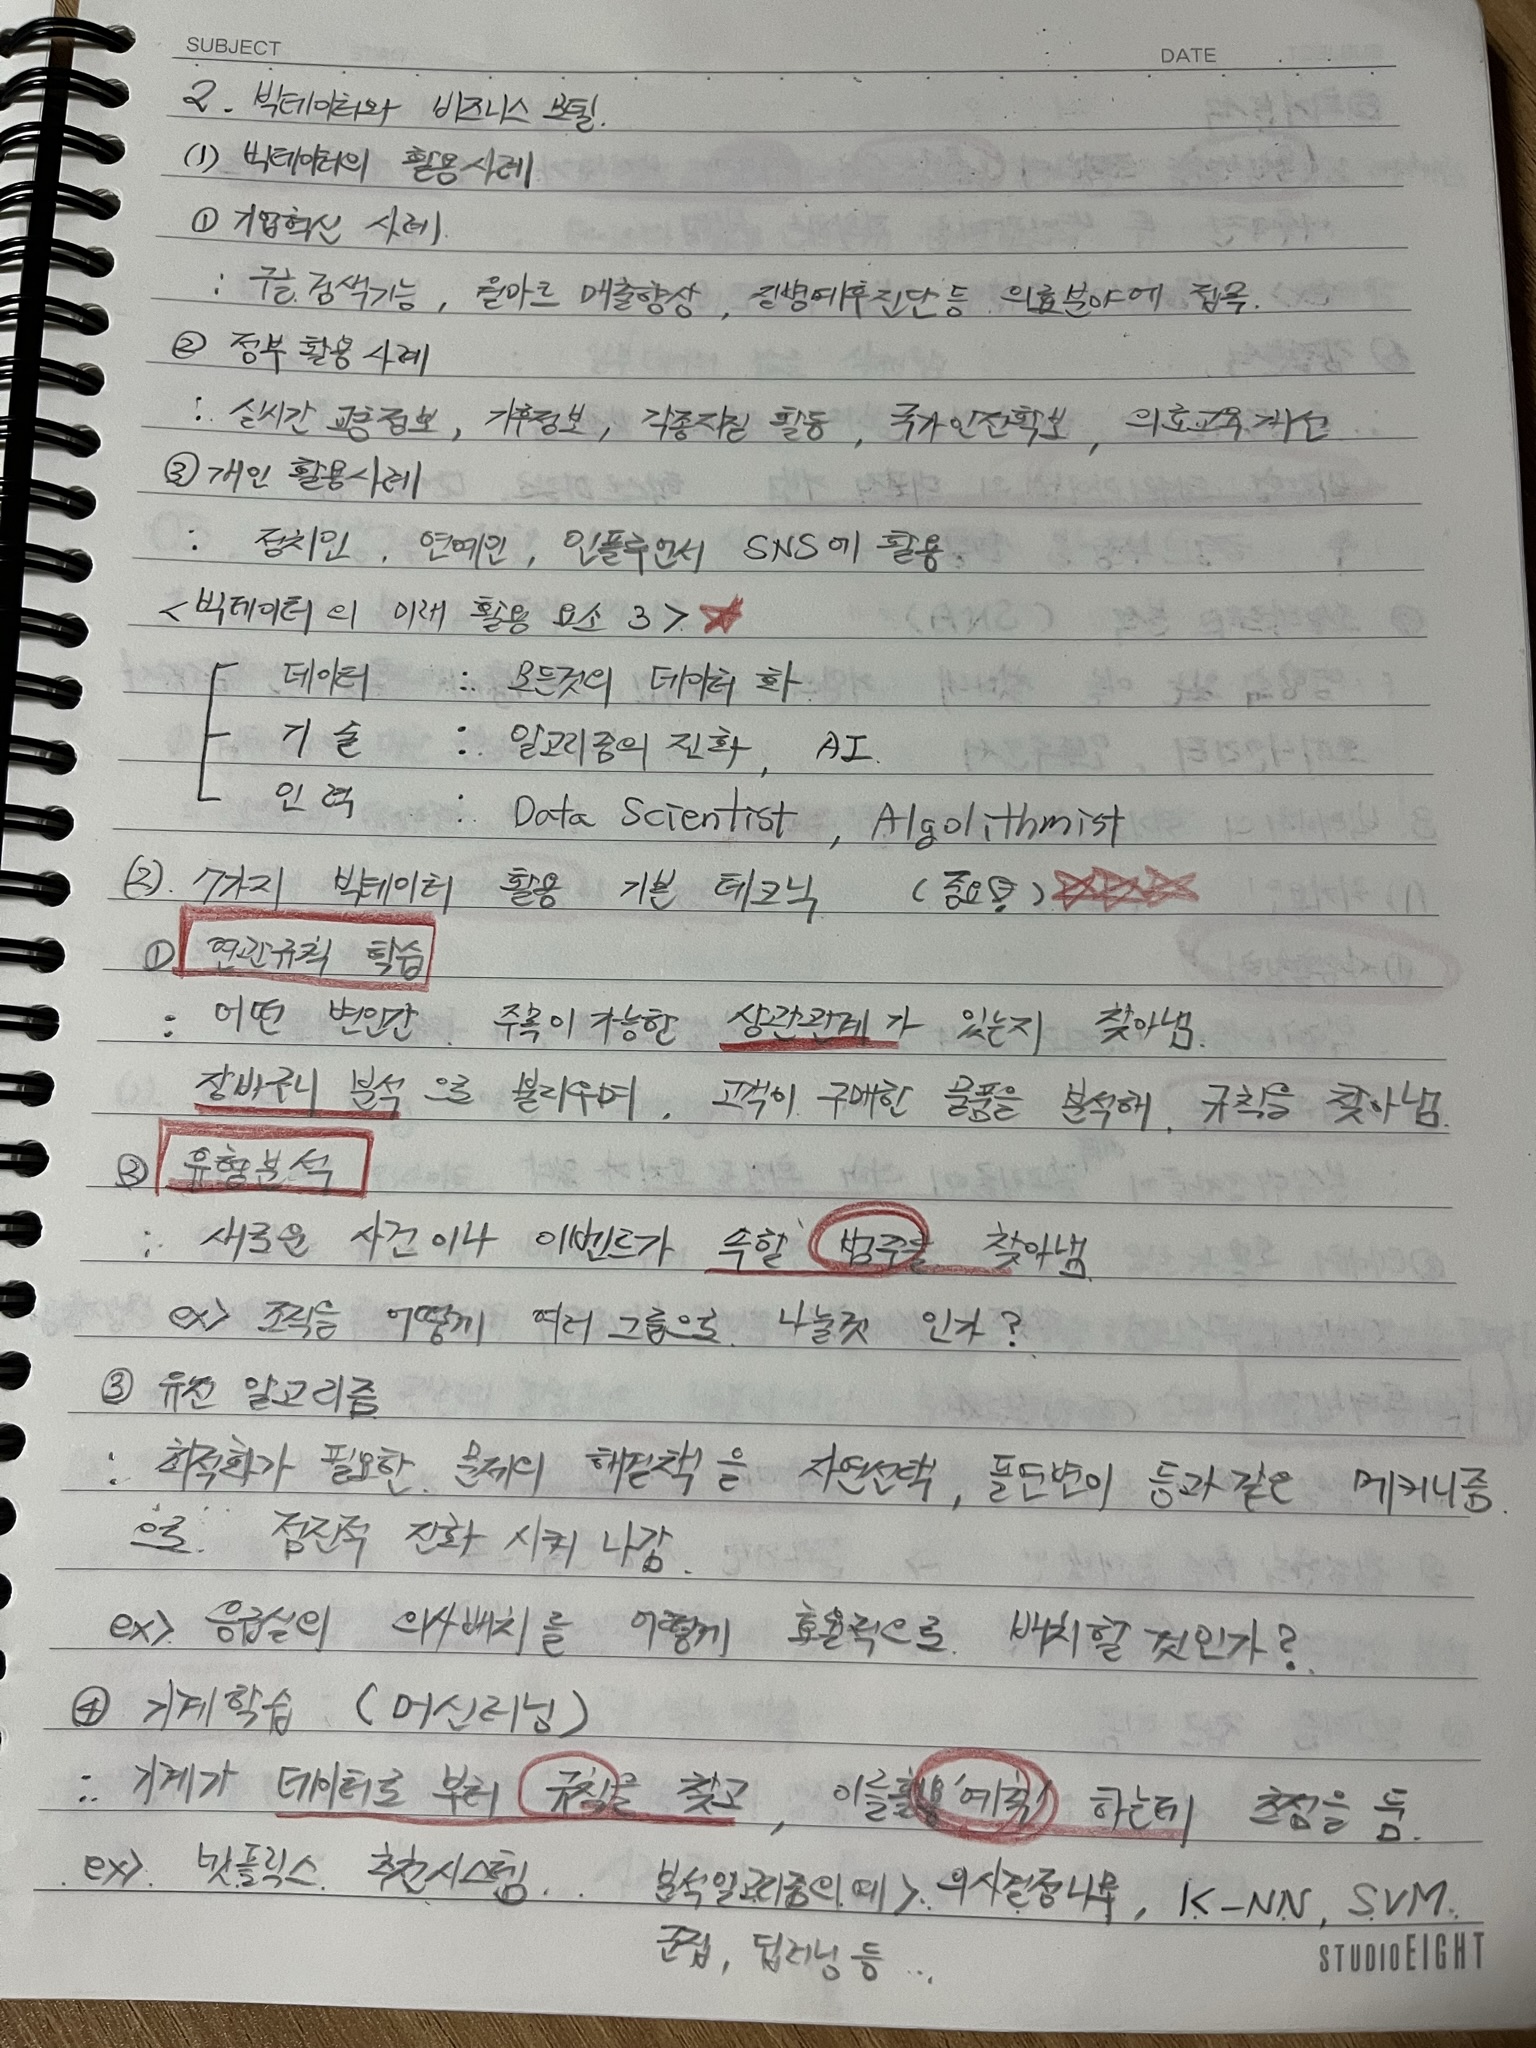 SUBJECT
DATE
2. 빅데이터와 비즈니스 모델.
(1) 빅데이터의 활용사례
① 기업혁신 사례.
: 구글 검색기능, 월마트 매출향상, 질병예후진단등 의료분야에 접목.
② 정부 활용사례
: 실시간 교통정보, 기후정보, 각종지질 활동, 국가안전확보, 의료교육개선
③ 개인 활용사례
: 정치인, 연예인, 인플루언서 SNS에 활용.
<빅데이터의 미래 활용 요소 3>
데이터 : 모든것의 데이터 화.
기 술 : 알고리즘의 진화, AI.
인 력 : Data Scientist, Algolithmist
(2). 7가지 빅데이터 활용 기본 테크닉 (중요!)
① 연관규칙 학습
: 어떤 변인간 주목이가능한 상관관계가 있는지 찾아냄.
장바구니 분석 으로 불리우며, 고객이 구매한 물품을 분석해, 규칙을 찾아냄.
② 유형분석
: 새로운 사건이나 이벤트가 속할 범주를 찾아냄
ex> 조직을 어떻게 여러그룹으로 나눌것 인가?
③ 유전 알고리즘
: 최적화가 필요한 문제의 해결책을 자연선택, 돌연변이 등과 같은 메커니즘
으로. 점진적 진화 시켜 나감.
ex> 응급실의 의사배치를 어떻게 효율적으로 배치할 것인가?
④ 기계학습 (머신러닝)
: 기계가 데이터로 부터 규칙을 찾고, 이를활용 '예측' 하는데 초점을 둠.
ex> 넷플릭스 추천시스템. 분석알고리즘의예> 의사결정나무, K-NN, SVM.
군집, 딥러닝 등...
STUDIOEIGHT